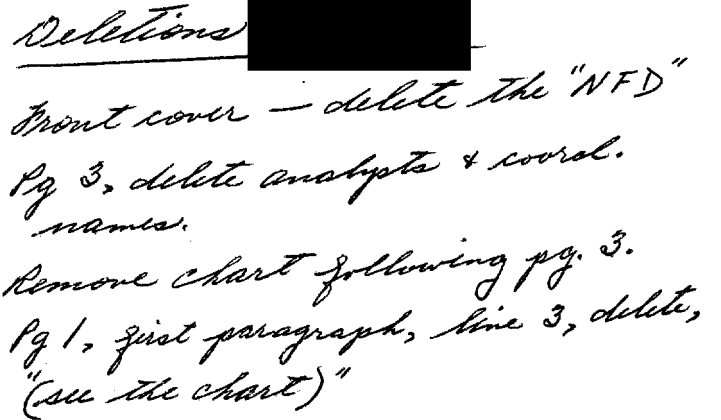 Deletions
Front cover — delete the "NFD"
Pg 3, delete analysts & coord.
names.
Remove chart following pg. 3.
Pg 1, first paragraph, line 3, delete,
"(see the chart)"